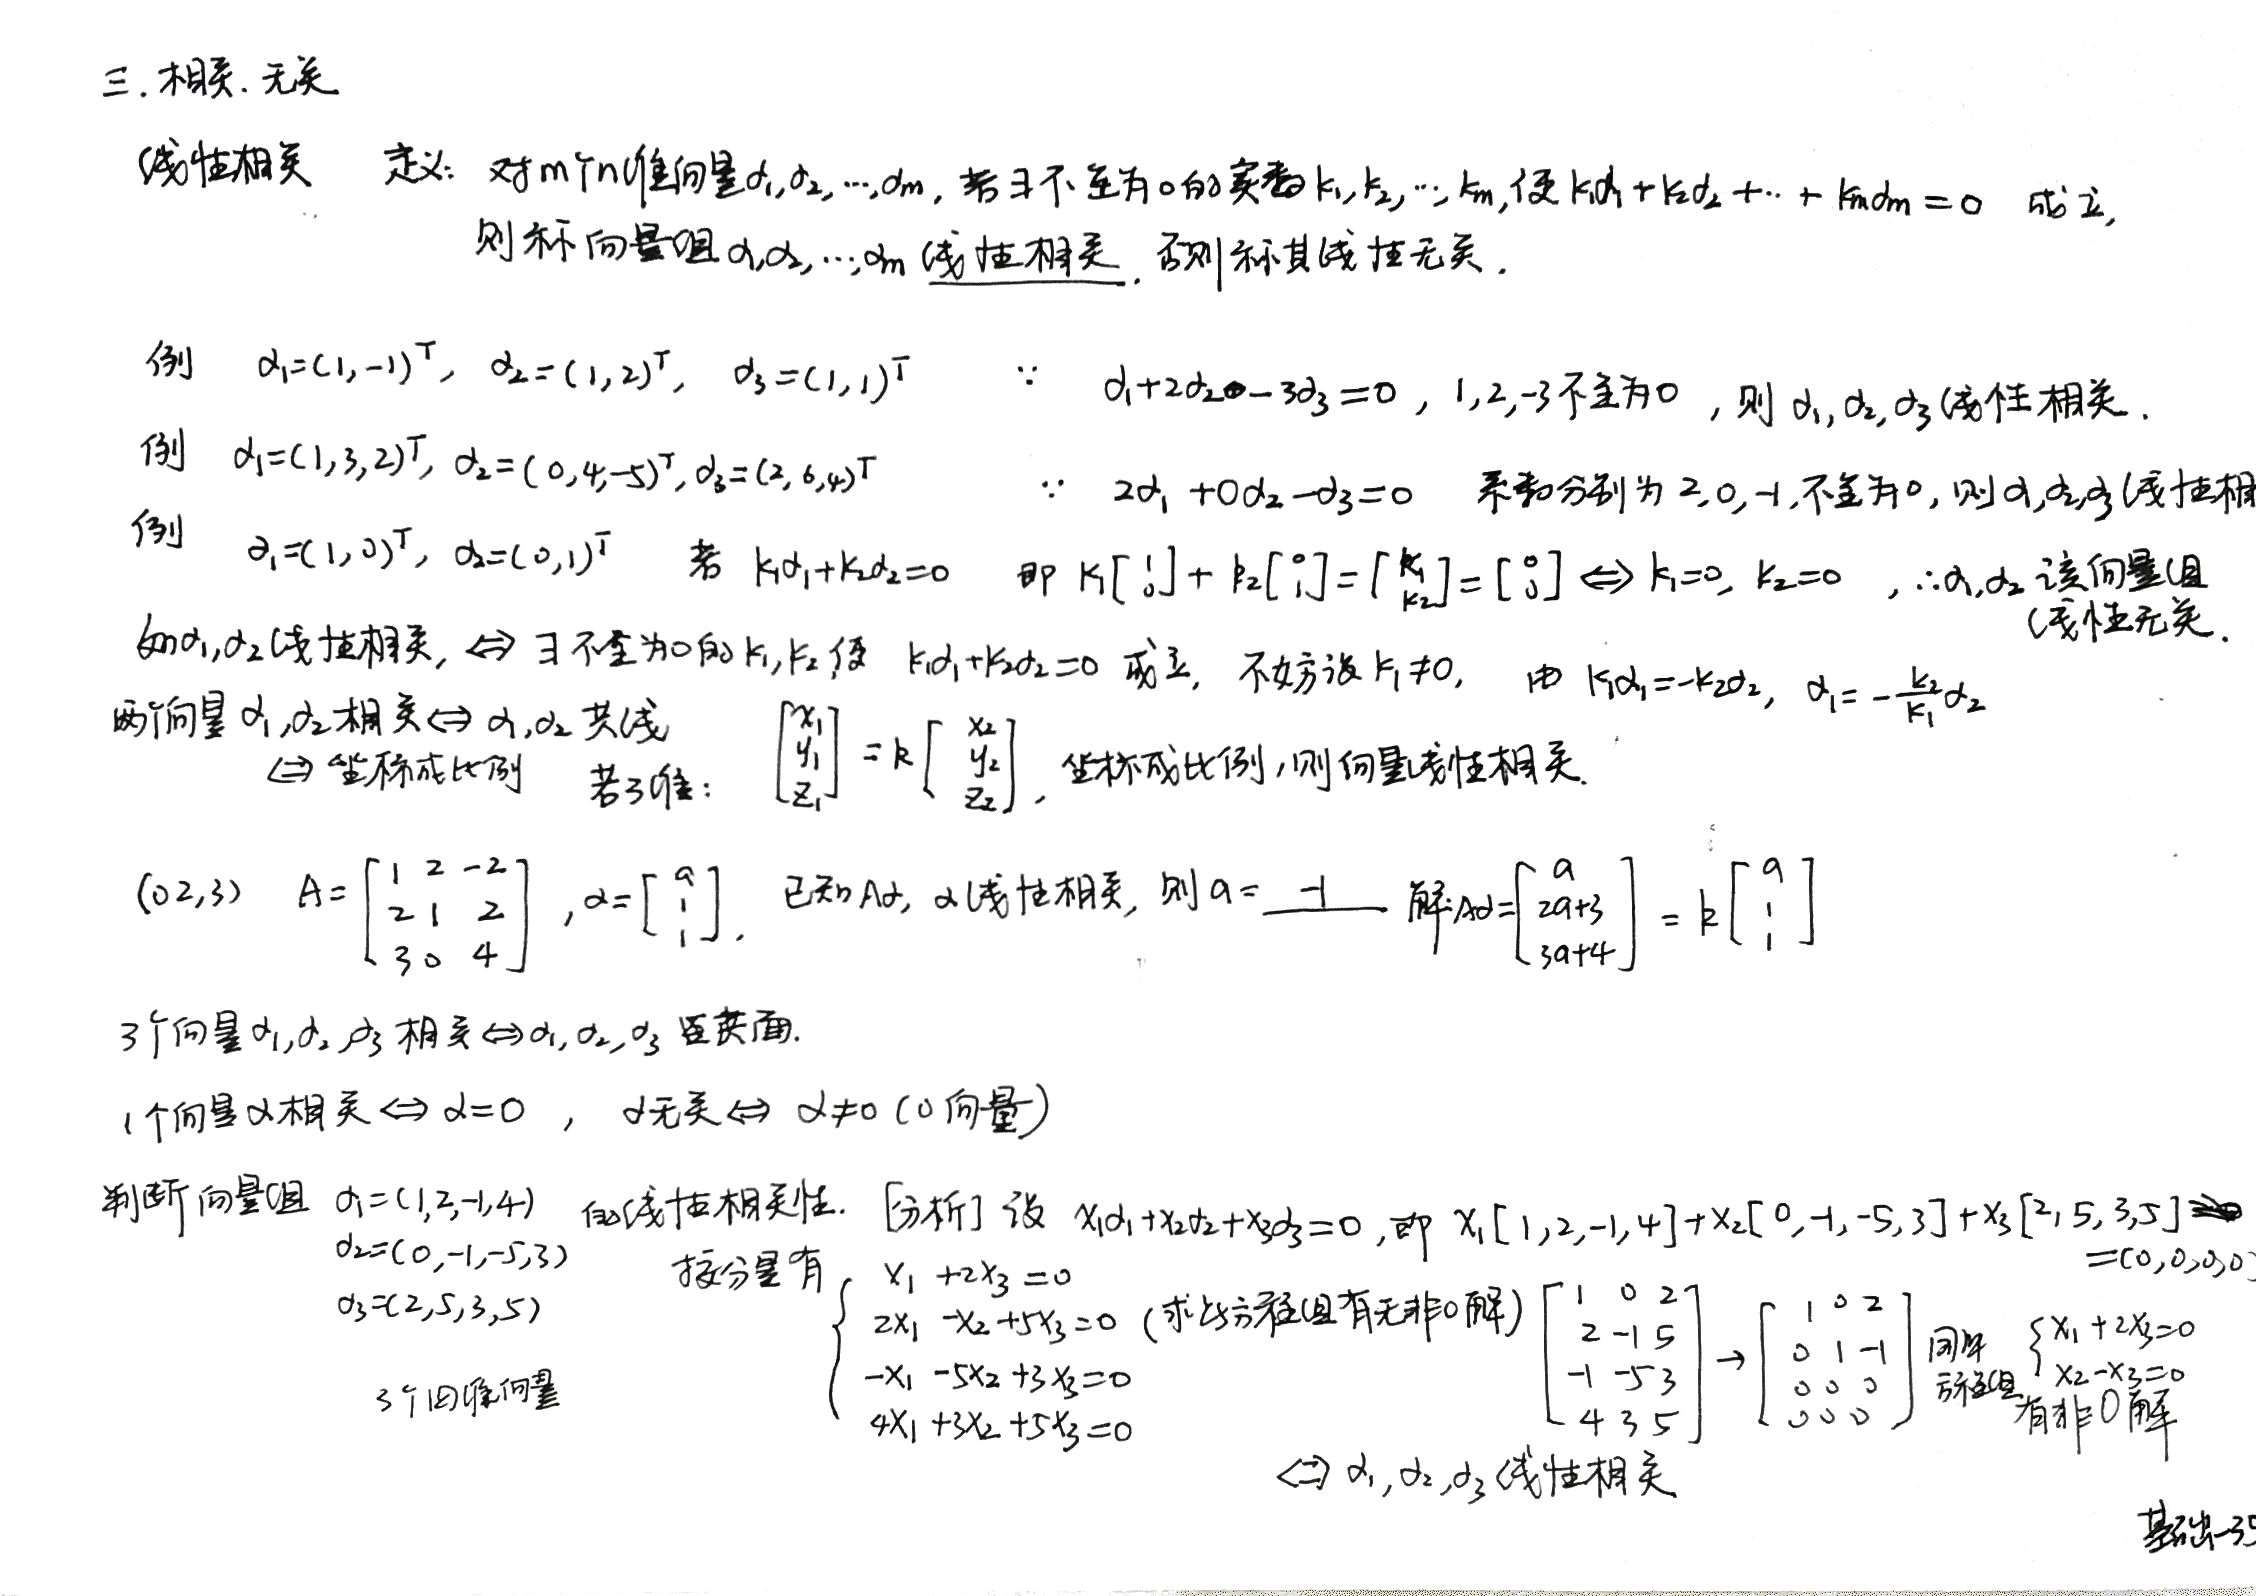 三. 相关. 无关
线性相关 定义: 对m个n维向量α₁,α₂,…,αm, 若∃不全为0的实数k₁,k₂,…,km, 使k₁α₁+k₂α₂+…+kmαm=0 成立,
则称向量组α₁,α₂,…,αm线性相关. 否则称其线性无关.
例 α₁=(1,-1)ᵀ, α₂=(1,2)ᵀ, α₃=(1,1)ᵀ ∵ α₁+2α₂-3α₃=0, 1,2,-3不全为0, 则α₁,α₂,α₃线性相关.
例 α₁=(1,3,2)ᵀ, α₂=(0,4,-5)ᵀ, α₃=(2,6,4)ᵀ ∵ 2α₁+0α₂-α₃=0 系数分别为2,0,-1,不全为0, 则α₁,α₂,α₃线性相
例 α₁=(1,0)ᵀ, α₂=(0,1)ᵀ 若 k₁α₁+k₂α₂=0 即 k₁[1 0]+k₂[0 1]=[k₁ k₂]=[0 0] ⇔ k₁=0, k₂=0, ∴α₁,α₂该向量组
线性无关.
如α₁,α₂线性相关, ⇔ ∃不全为0的k₁,k₂,使 k₁α₁+k₂α₂=0 成立, 不妨设k₁≠0, 由 k₁α₁=-k₂α₂, α₁=-k₂/k₁ α₂
两个向量α₁,α₂相关⇔α₁,α₂共线
⇔坐标成比例 若3维: [x₁ y₁ z₁]=k[x₂ y₂ z₂], 坐标成比例,则向量线性相关.
(02,3) A=[1 2 -2; 2 1 2; 3 0 4], α=[a 1 1]. 已知Aα, α线性相关, 则a= -1 解:Aα=[a 2a+3 3a+4]=k[a 1 1]
3个向量α₁,α₂,α₃相关⇔α₁,α₂,α₃共面.
1个向量α相关⇔α=0, α无关⇔α≠0 (0向量)
判断向量组 α₁=(1,2,-1,4) 的线性相关性. [分析] 设 x₁α₁+x₂α₂+x₃α₃=0, 即 x₁[1,2,-1,4]+x₂[0,-1,-5,3]+x₃[2,5,3,5]
=(0,0,0,0)
α₂=(0,-1,-5,3)
α₃=(2,5,3,5)
3个四维向量
按分量有 { x₁+2x₃=0
2x₁-x₂+5x₃=0 (求此方程组有无非0解)
-x₁-5x₂+3x₃=0
4x₁+3x₂+5x₃=0
[1 0 2; 2 -1 5; -1 -5 3; 4 3 5] → [1 0 2; 0 1 -1; 0 0 0; 0 0 0] 同解方程组 { x₁+2x₃=0
x₂-x₃=0
有非0解
⇔ α₁,α₂,α₃线性相关
基础-35